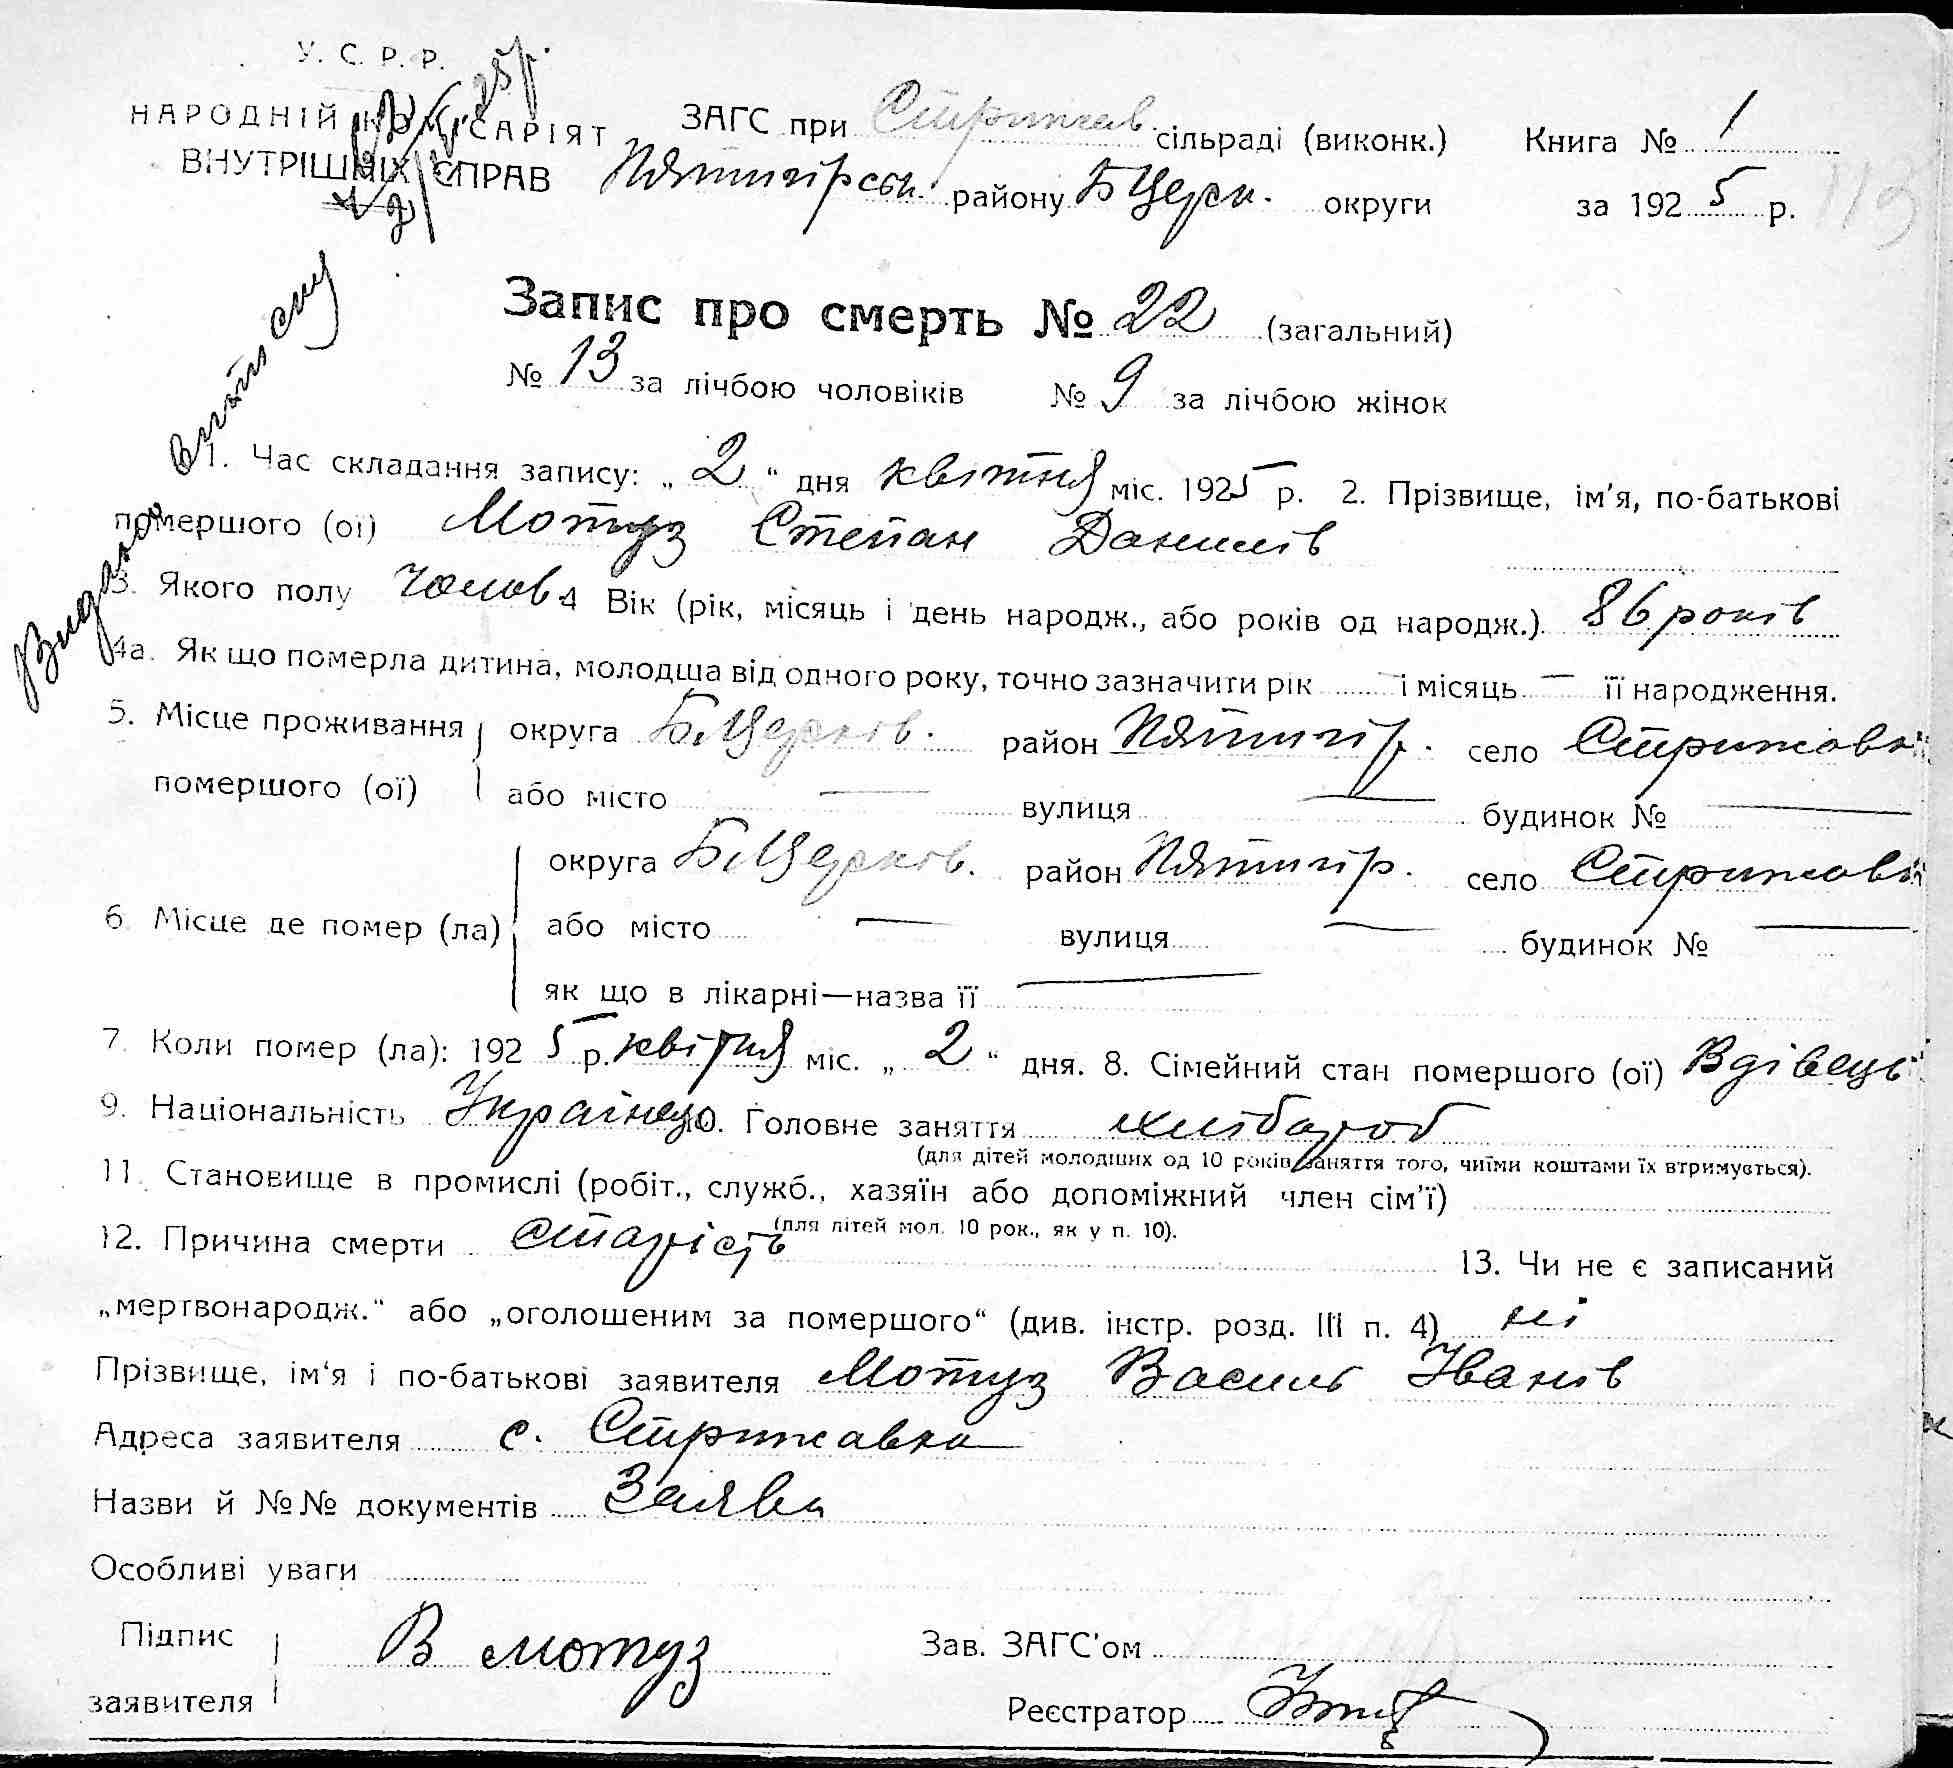 У. С. Р. Р.
НАРОДНІЙ КОМІСАРІЯТ
ВНУТРІШНІХ СПРАВ
ЗАГС при Стрижав. сільраді (виконк.) Книга № 1
Пятигірськ. району БЦерк. округи за 1925 р.
113
Видано виписку
Запис про смерть № 22 (загальний)
№ 13 за лічбою чоловіків № 9 за лічбою жінок
1. Час складання запису: „2“ дня квітня міс. 1925 р. 2. Прізвище, ім'я, по-батькові
помершого (ої) Мотуз Степан Данилів
3. Якого полу чолов. 4 Вік (рік, місяць і день народж., або років од народж.) 86 років
4а. Як що померла дитина, молодша від одного року, точно зазначити рік — і місяць — її народження.
5. Місце проживання округа БЦерків. район Пятигір. село Стрижавка
помершого (ої) або місто — вулиця — будинок № —
округа БЦерків. район Пятигір. село Стрижавка
6. Місце де помер (ла) або місто — вулиця — будинок № —
як що в лікарні—назва її —
7. Коли помер (ла): 1925 р. квітня міс. „2“ дня. 8. Сімейний стан помершого (ої) Вдівець
9. Національність Українець 10. Головне заняття хлібороб
(для дітей молодших од 10 років заняття того, чиїми коштами їх втримується).
11. Становище в промислі (робіт., служб., хазяїн або допоміжний член сім'ї)
(для дітей мол. 10 рок., як у п. 10).
12. Причина смерти старість 13. Чи не є записаний
„мертвонародж.“ або „оголошеним за помершого“ (див. інстр. розд. III п. 4) ні
Прізвище, ім'я і по-батькові заявителя Мотуз Василь Іванів
Адреса заявителя с. Стрижавка
Назви й №№ документів Заява
Особливі уваги
Підпис заявителя В мотуз
Зав. ЗАГС'ом
Реєстратор